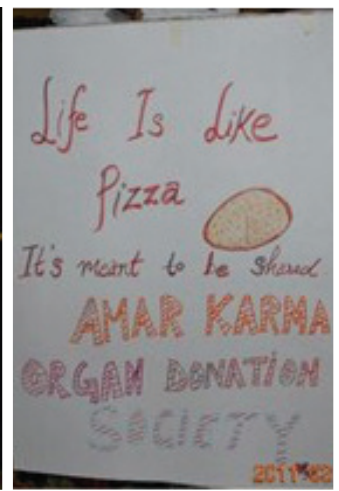 Life Is Like
Pizza
It's meant to be shared
AMAR KARMA
ORGAN DONATION
SOCIETY